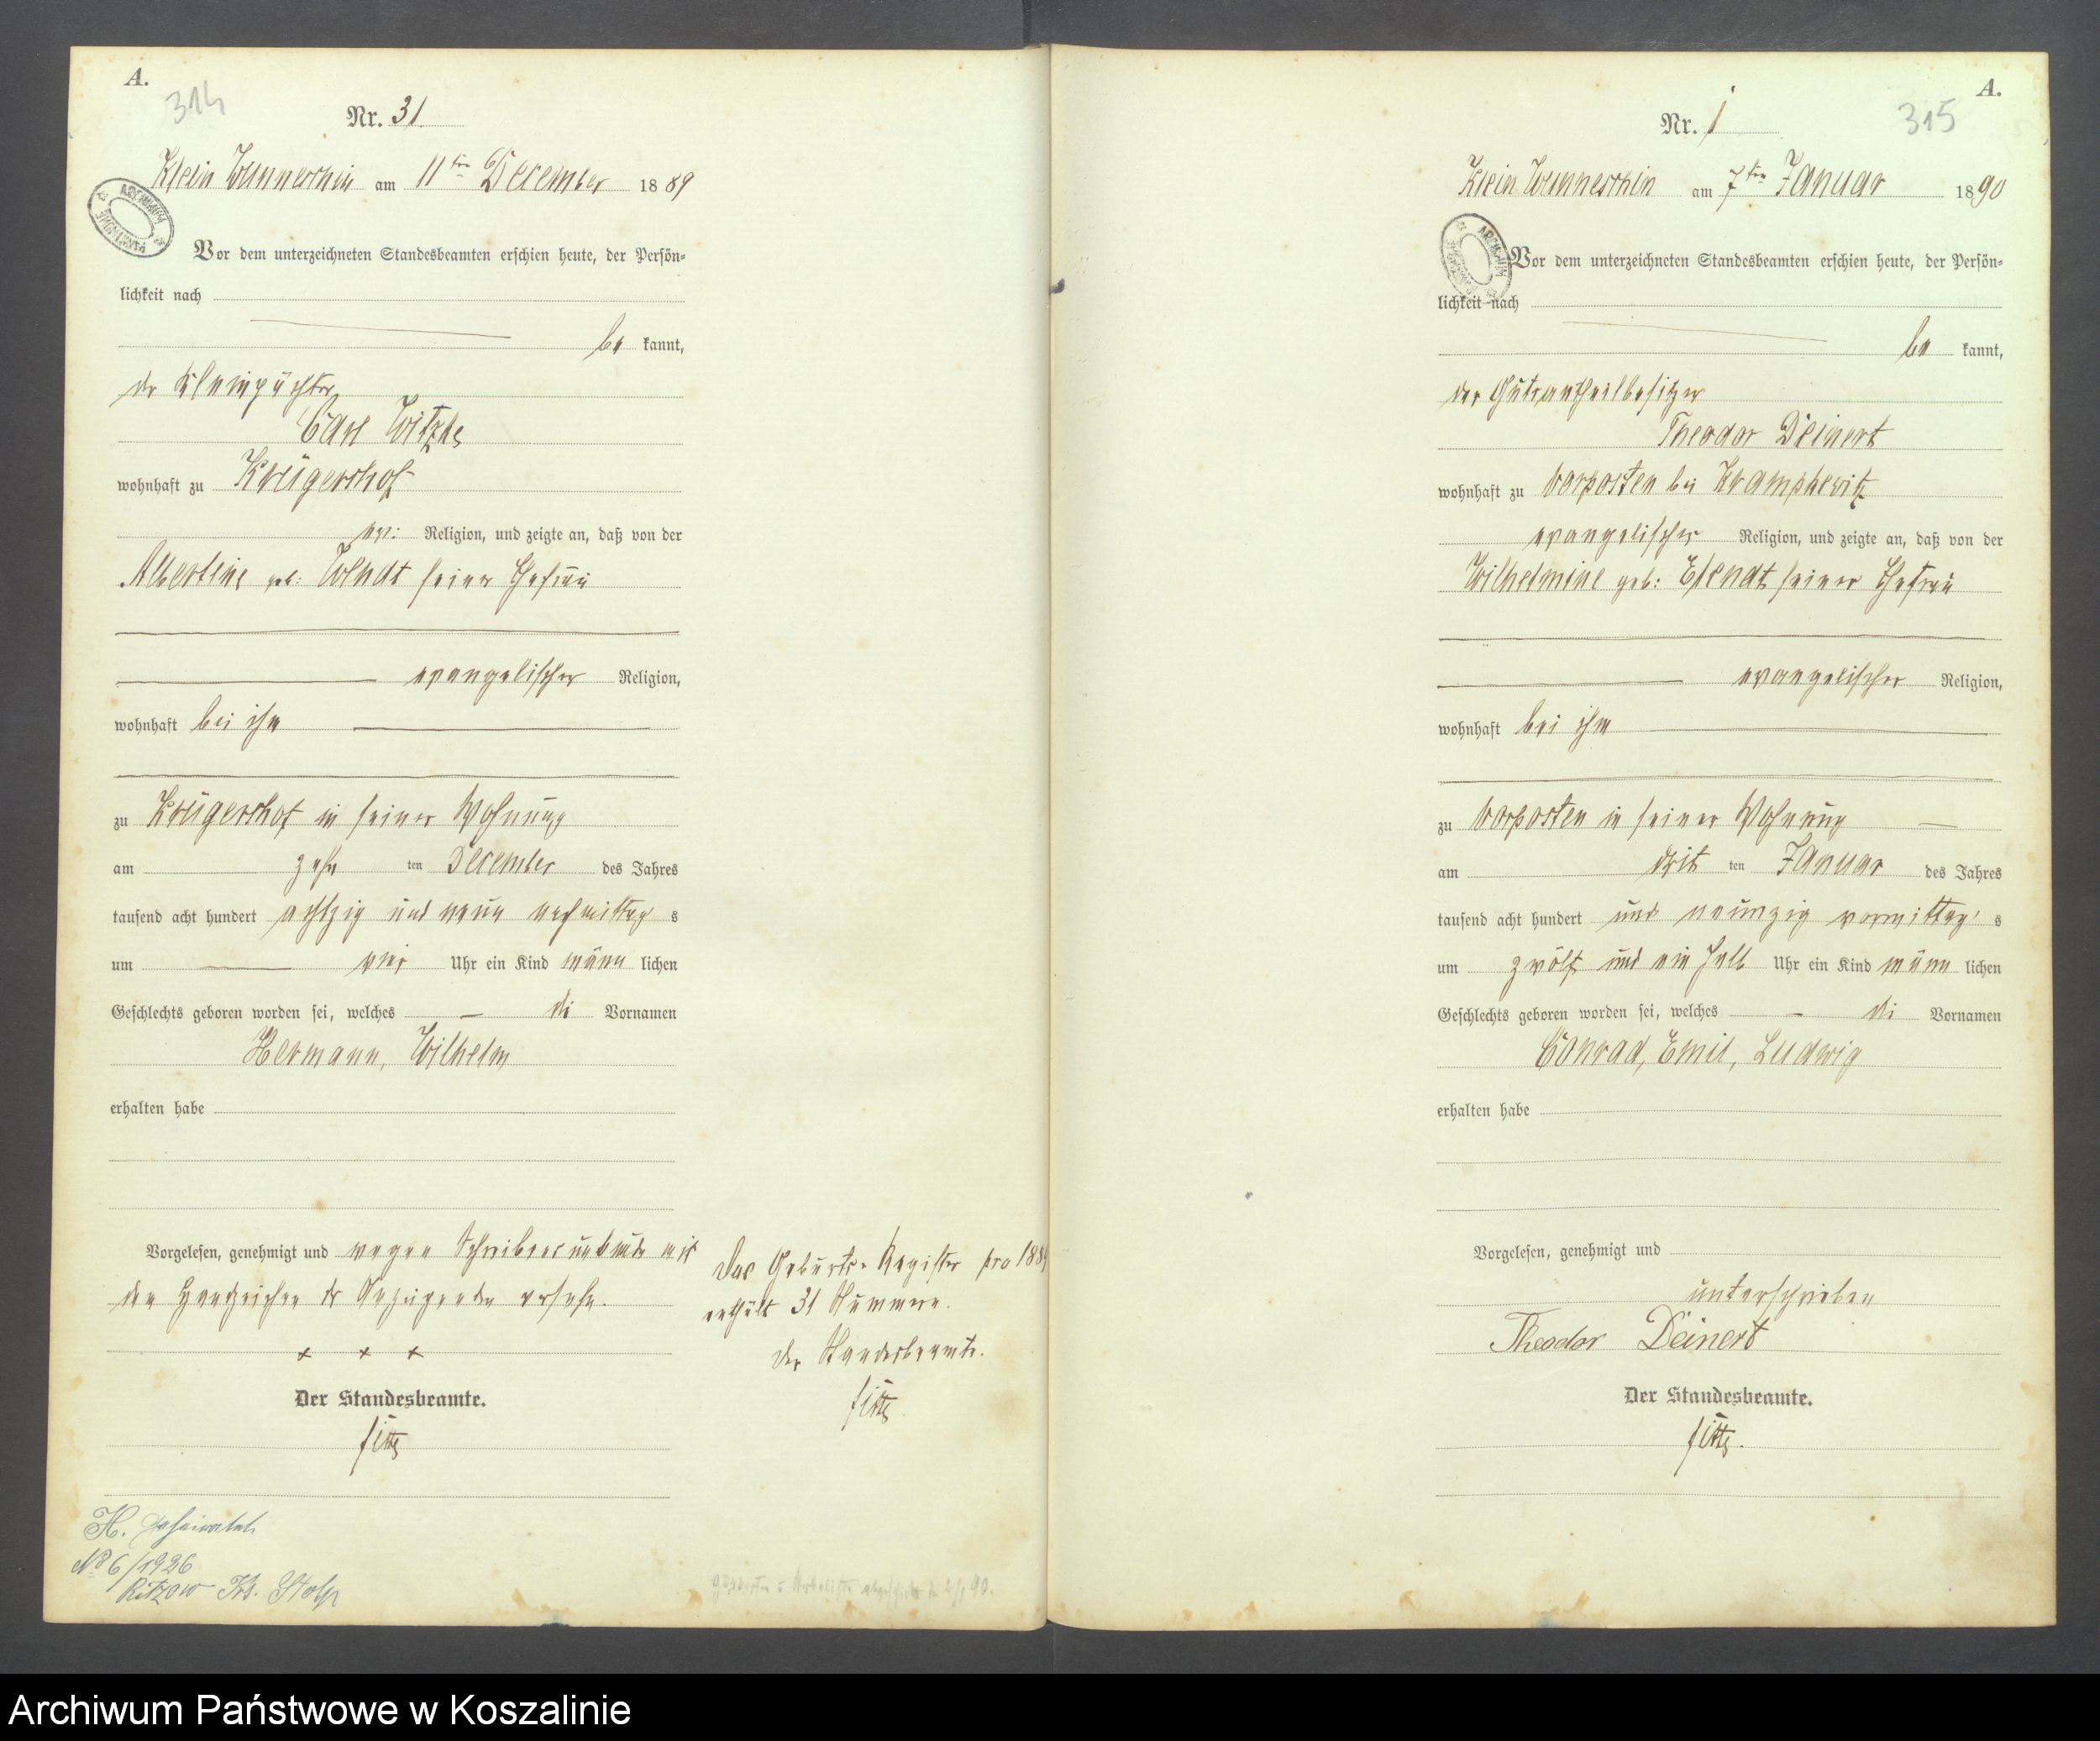 A.
314
Nr. 31
Klein Wunneschin am 11ten December 1889
ARCHIWUM PAŃSTWOWE
Vor dem unterzeichneten Standesbeamten erschien heute, der Persön-
lichkeit nach
be kannt,
der Kleinpächter
Carl Witzke
wohnhaft zu Krügershof
ev: Religion, und zeigte an, daß von der
Albertine geb: Wendt seiner Ehefrau
evangelischer Religion,
wohnhaft bei ihm
zu Krügershof in seiner Wohnung
am zehn ten December des Jahres
tausend acht hundert achtzig und neun nachmittag s
um vier Uhr ein Kind männ lichen
Geschlechts geboren worden sei, welches die Vornamen
Hermann, Wilhelm
erhalten habe
Vorgelesen, genehmigt und wegen Schreibensunkunde mit
den Handzeichen des Anzeigenden versehn.
x x x
Der Standesbeamte.
Das Geburts-Register pro 1889
enthält 31 Nummern.
Der Standesbeamte.
H. geheiratet
No 6/1926
Ritzow Krs. Stolp
A.
315
Nr. 1
Klein Wunneschin am 7ten Januar 1890
ARCHIWUM PAŃSTWOWE
Vor dem unterzeichneten Standesbeamten erschien heute, der Persön-
lichkeit nach
be kannt,
der Gutsantheilbesitzer
Theodor Deinert
wohnhaft zu Vorposten bei Krampkewitz
evangelischer Religion, und zeigte an, daß von der
Wilhelmine geb: seiner Ehefrau
evangelischer Religion,
wohnhaft bei ihm
zu Vorposten in seiner Wohnung
am drit ten Januar des Jahres
tausend acht hundert und neunzig vormittag s
um zwölf und ein halb Uhr ein Kind männ lichen
Geschlechts geboren worden sei, welches die Vornamen
Conrad, Emil, Ludwig
erhalten habe
Vorgelesen, genehmigt und
unterschrieben
Theodor Deinert
Der Standesbeamte.
Archiwum Państwowe w Koszalinie